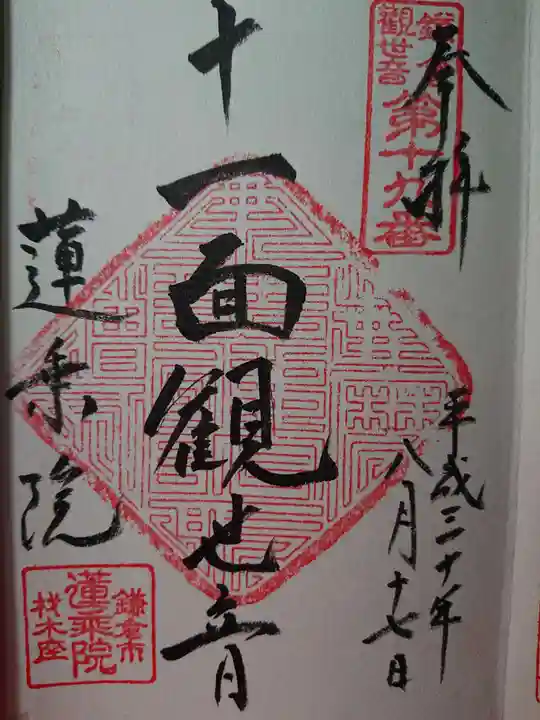 奉拝
鎌倉
観世音
第十九番
平成三十年
八月十七日
十一面観世音
蓮乗院
鎌倉市
蓮乗院
材木座